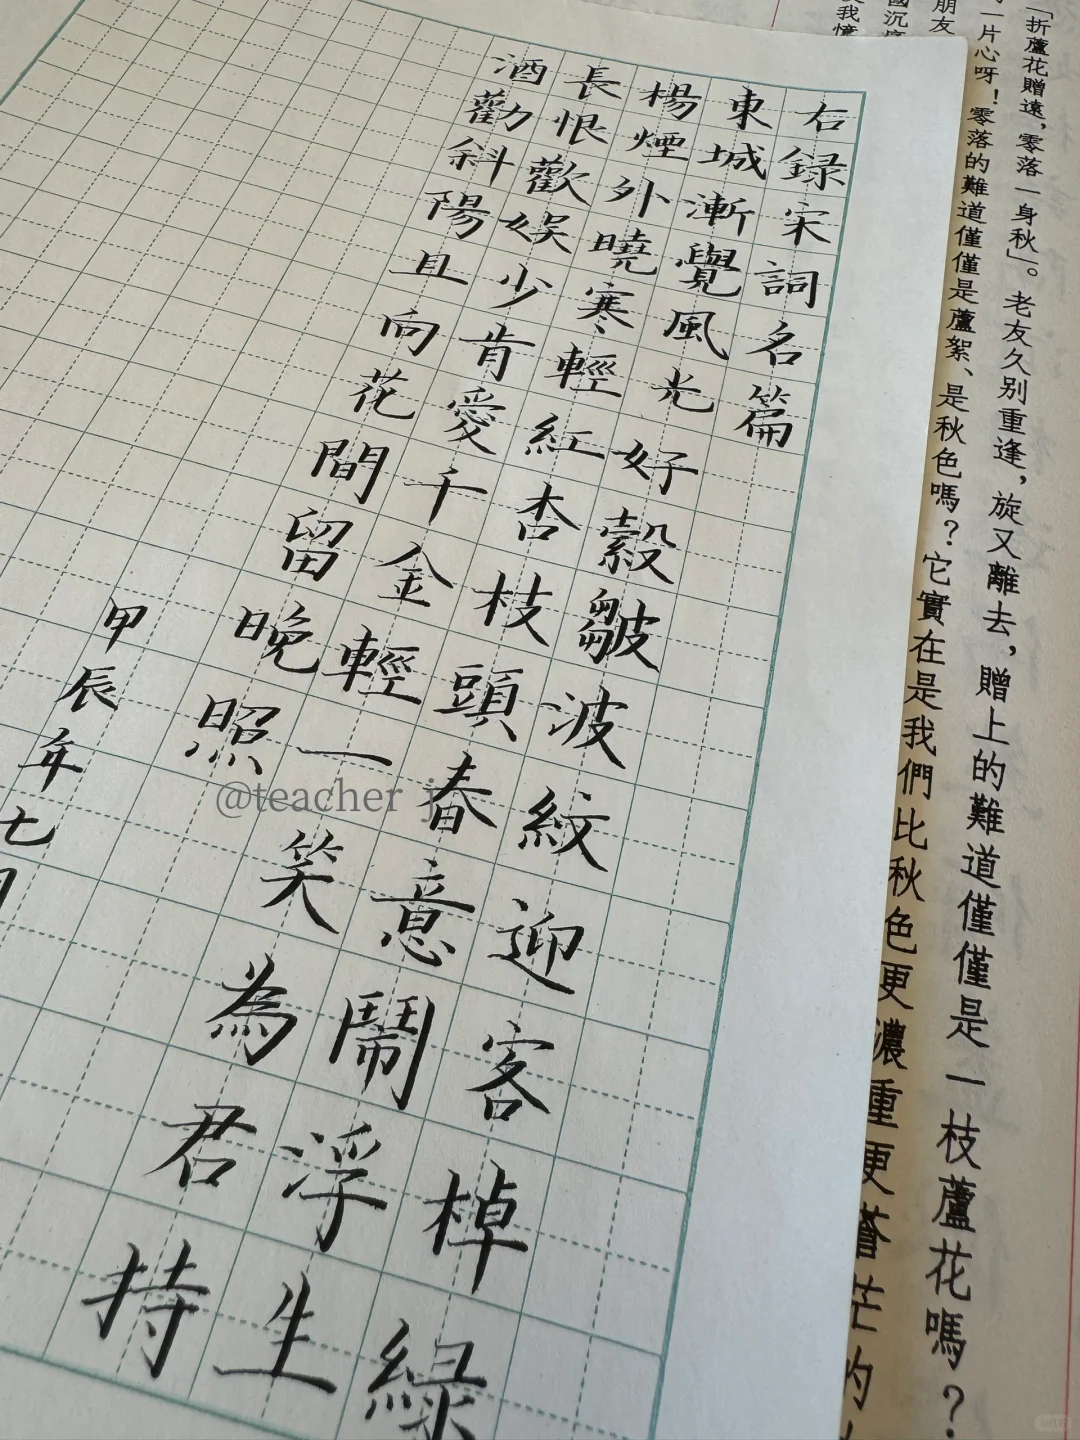 「折蘆花贈遠，零落一身秋」。老友久别重逢，旋又離去，贈上的難道僅僅是一枝蘆花嗎？
一片心呀！零落的難道僅僅是蘆絮、是秋色嗎？它實在是我們比秋色更濃重更蒼茫的
朋友
國沉
我憶
右録宋詞名篇
東城漸覺風光好縠皺波紋迎客棹綠
楊煙外曉寒輕紅杏枝頭春意鬧浮生
長恨歡娛少肯愛千金輕一笑為君持
酒勸斜陽且向花間留晚照
甲辰年七
@teacher j